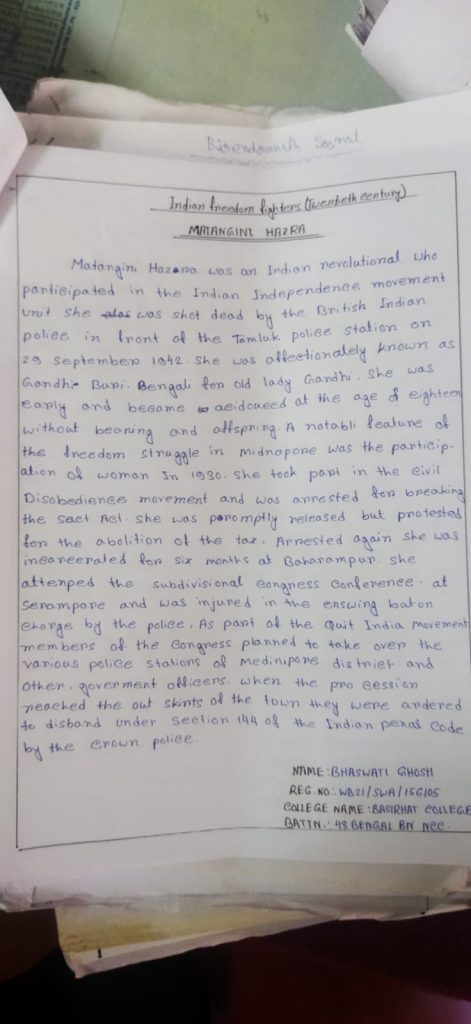 Birendranath Sasmal
Indian freedom fighters (Twentieth century)
MATANGINI HAZRA
Matangini Hazara was an Indian revolutional who
participated in the Indian Independence movement
unit she was shot dead by the British Indian
police in front of the Tamluk police station on
29 September 1942. She was affectionately known as
Gandhi Buri. Bengali for old lady Gandhi. She was
early and became at the age of eighteen
without bearing and offspring. A notabli feature of
the freedom struggle in Midnapore was the particip-
ation of woman In 1930. She took part in the civil
Disobedience movement and was arrested for breaking
the Sact Act. She was paromptly released but protested
for the abolition of the tax. Arrested again she was
incarcerated for six months at Baharampur. She
attenped the subdivisional congress conference. at
Serampare and was injured in the enswing baton
charge by the police. As part of the Quit India movement
members of the Congress planned to take over the
various police stations of Medinipore district and
other. goverment officers. when the pro cession
reached the out skirts of the town they were ordered
to disband under section 144 of the Indian penal Code
by the crown police.
NAME: BHASWATI GHOSH
REG. NO.: WB21/SWA/156105
COLLEGE NAME: BASIRHAT COLLEGE
BATTN.: 48 BENGAL BN NCC.